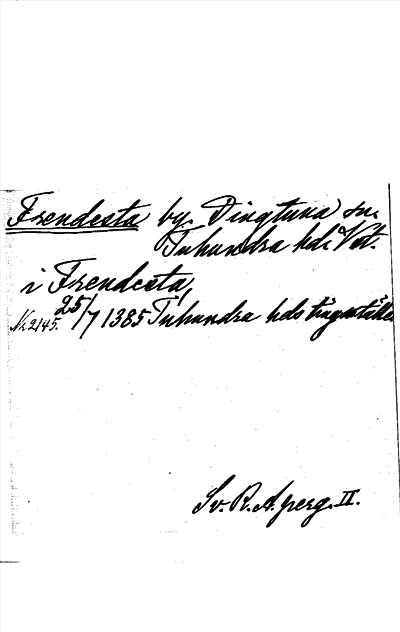 Frendesta by. Dingtuna sn.
Tuhundra hd. Vst.
i Frendesta,
Nr. 2145. 25/7 1385 Tuhundra hds tingsställe
Sv. R. A. perg. II.